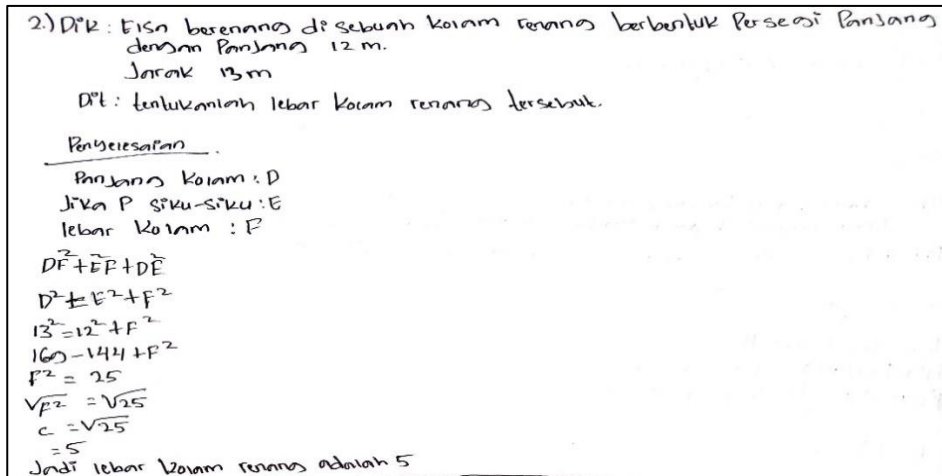 2.) Dik : Elsa berenang di sebuah kolam renang berbentuk Persegi Panjang
dengan Panjang 12 m.
Jarak 13 m
Dit : tentukanlah lebar kolam renang tersebut.
Penyelesaian
Panjang kolam : D
Jika P siku-siku : E
lebar kolam : F
DF² + EF² + DE²
D² ± E² + F²
13² = 12² + F²
169 - 144 + F²
F² = 25
√F² = √25
c = √25
= 5
Jadi lebar kolam renang adalah 5